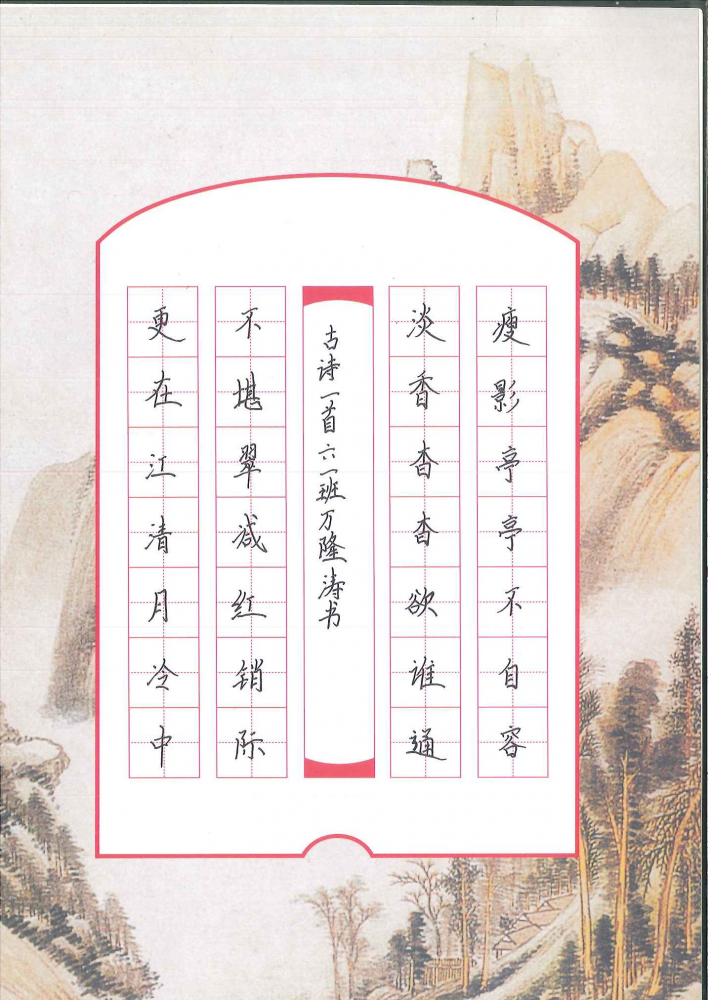 瘦影亭亭不自容
淡香杳杳欲谁通
古诗一首六一班万隆涛书
不堪翠减红销际
更在江清月冷中